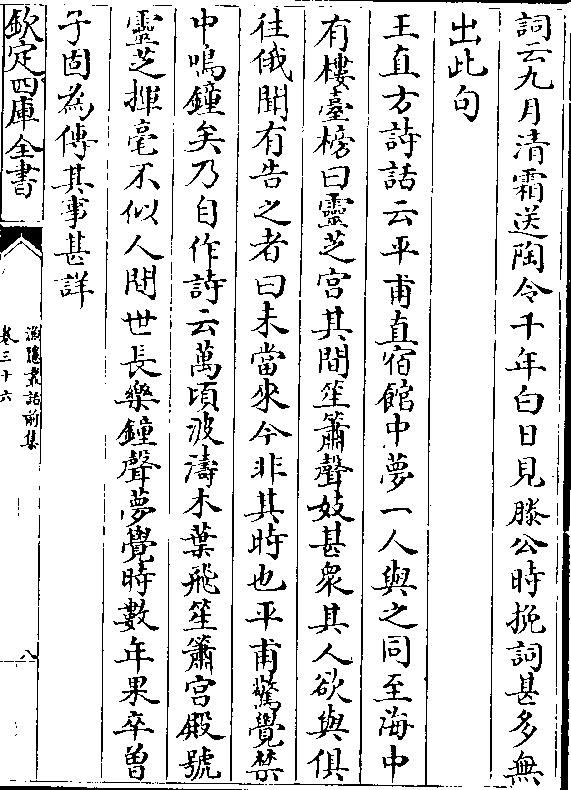 詞云九月清霜送陶令千年白日見滕公時挽詞甚多無
出此句
王直方詩話云平甫直宿館中夢一人與之同至海中
有樓臺榜曰靈芝宫其間笙簫聲妓甚衆其人欲與俱
往俄聞有告之者曰未當來今非其時也平甫驚覺禁
中鳴鐘矣乃自作詩云萬頃波濤木葉飛笙簫宫殿號
靈芝揮毫不似人間世長樂鐘聲夢覺時數年果卒曽
子固為傳其事甚詳
欽定四庫全書
漁隱叢話前集
卷三十六
八